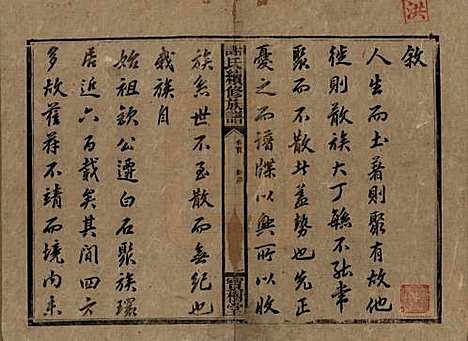 敘
人生而土著則聚有故他
徙則散族大丁繇不能聿
聚而不散此蓋勢也先正
憂之而譜牒以興所以收
謝氏續修族譜
卷首
寶樹堂
族矣世不至散而無紀也
我族自
始祖欽公遷白石聚族環
居近六百載矣其間四方
多故萑苻不靖而境內未
洪